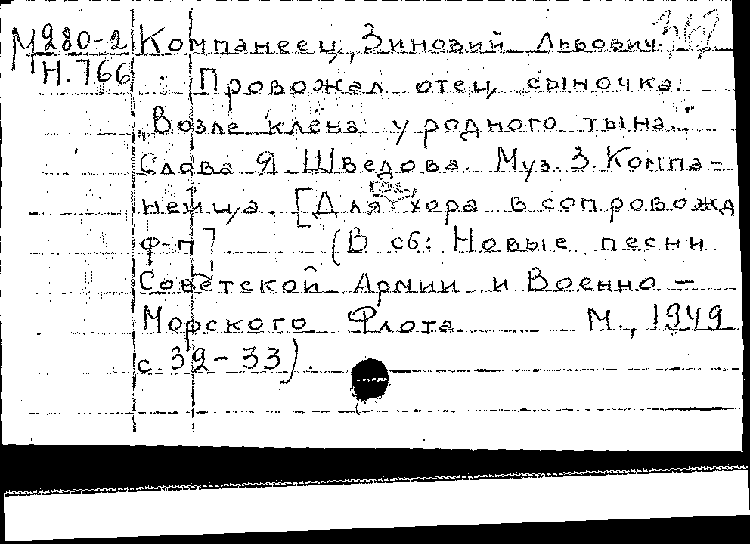 М280-2 Компанеец, Зиновий Львович.
Н.766 : Провожал отец сыночка.
„Возле клёна у родного тына..."
Слова Я. Шведова. Муз. З. Компа-
нейца. [Для хора в сопровожд
ф-п] (В сб: Новые песни
Советской Армии и Военно-
Морского Флота М., 1949
с. 32-33).